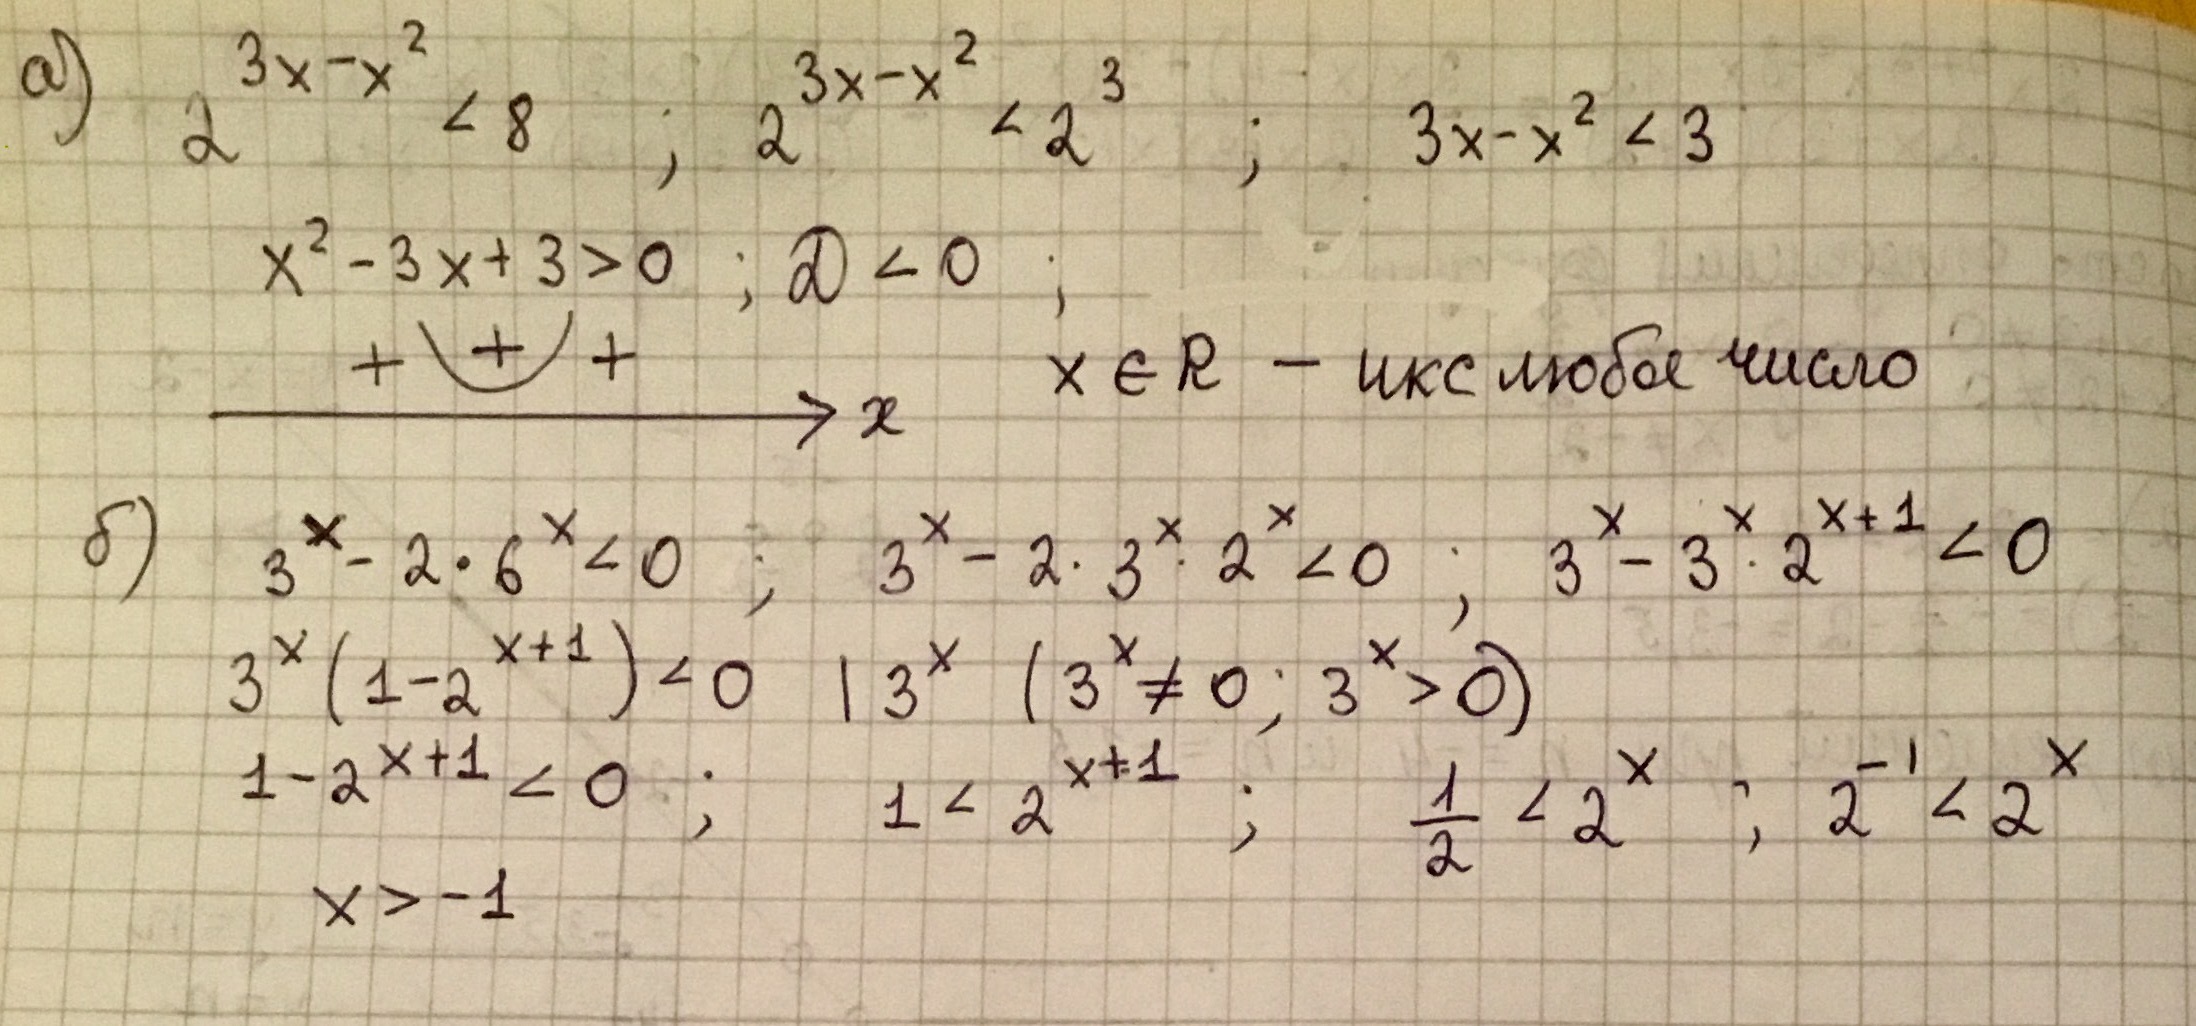 а) 2^(3x-x²) < 8 ; 2^(3x-x²) < 2³ ; 3x-x² < 3
x² - 3x + 3 > 0 ; D < 0 ;
+ + + x x ∈ R - икс любое число
б) 3^x - 2 · 6^x < 0 ; 3^x - 2 · 3^x · 2^x < 0 ; 3^x - 3^x · 2^(x+1) < 0
3^x (1 - 2^(x+1)) < 0 | 3^x (3^x ≠ 0 ; 3^x > 0)
1 - 2^(x+1) < 0 ; 1 < 2^(x+1) ; 1/2 < 2^x ; 2^(-1) < 2^x
x > -1